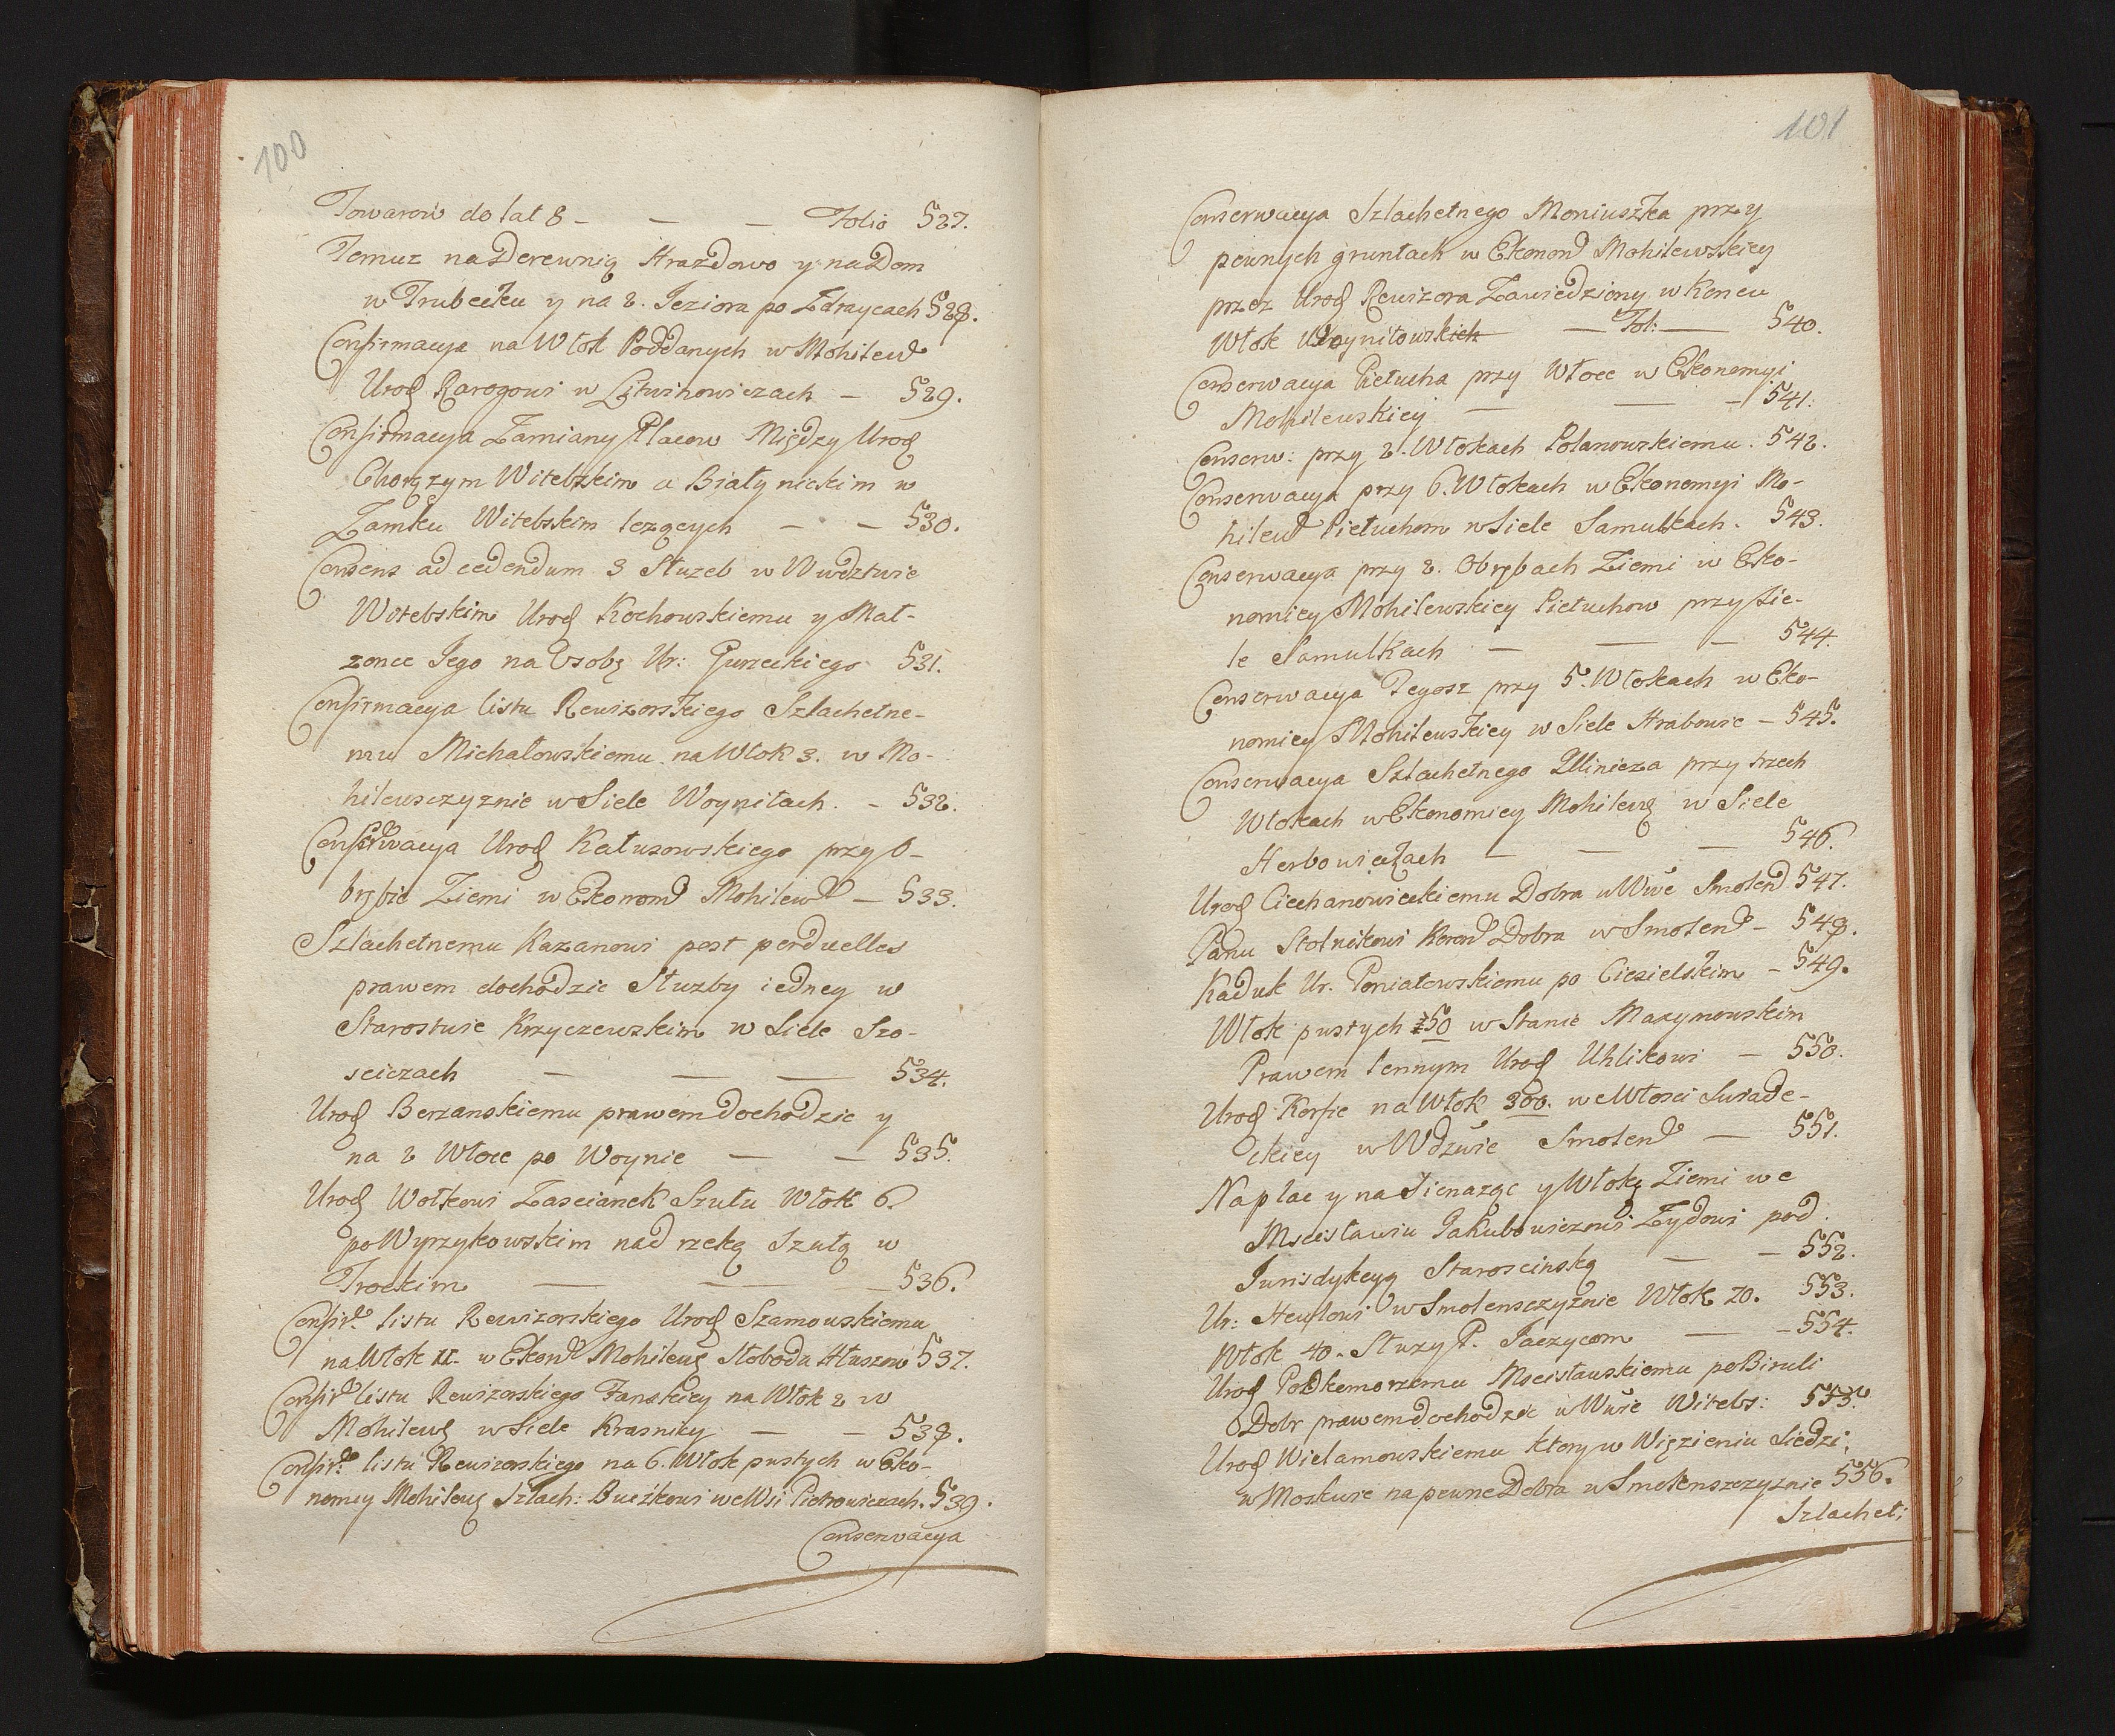 100
Towarow do lat 8 - — — Folio 527.
Temuz na Derewnię Hrazdowo y na Dom
w Trubecku y na 2. Jeziora po Zdraycach 528.
Confirmacya na Włok Poddanych w Mohilew
Urod Rarogowi w Litwinowiczach — 529.
Confirmacya Zamiany Placow Między Urod
Chorązym Witebskim a Białynickim w
Zamku Witebskim lezących — — 530.
Consens ad cedendum 3 Słuzeb w Wwdztwie
Witebskim Urod Kochowskiemu y Mał-
zonce Jego na Osobę Ur: Gurzeckiego 531.
Confirmacya listu Rewizorskiego Szlachetne-
mu Michałowskiemu na Włok 3. w Mo-
hilewsczyznie w Siele Woyniłach. - 532.
Conserwacya Urod Kałusowskiego przy O-
brębie Ziemi w Ekonom Mohilew — 533.
Szlachetnemu Kazanowi post perduelles
prawem dochodzic Słuzby iedney w
Starostwie Krzyczewskim w Siele Szo-
sciczach — — — 534.
Urod Berzanskiemu prawem dochodzic y
na 2 Włoce po Woynie — — 535.
Urod Wołkowi Zascianek Szułu Włok 6.
po Wyrzykowskim nad rzeką Szułą w
Trockim — — — 536.
Confir. listu Rewizorskiego Urod Szamowskiemu
na Włok II. w Ekon Mohilew Słoboda Hłuszow 537.
Confir listu Rewizorskiego Fanskiey na Włok 2 w
Mohilew w Siele Krasnicy — — 538.
Confir. listu Rewizorskiego na 6. Włok pustych w Eko-
nomiy Mohilew Szlach: Buczkowi we Wsi Pietrowiczach. 539.
Conserwacya
101
Conserwacya Szlachetnego Moniuszka przy
pewnych gruntach w Ekonom Mohilewskiey
przez Urod Rewizora Zawiedziony w Koncu
Włok Woyniłowskich — Fol: — 540.
Conserwacya Pietucha przy Włoce w Ekonomyi
Mohilewskiey — — — 541.
Conserw: przy 2. Włokach Polanowskiemu. 542.
Conserwacya przy 6. Włokach w Ekonomyi Mo-
hilew Pietuchom w Siele Samulkach. 543.
Conserwacya przy 2. Obrębach Ziemi w Eko-
nomiey Mohilewskiey Pietuchow przy Sie-
le Samulkach — — — 544.
Conserwacya Pegosz przy 5. Włokach w Eko-
nomiey Mohilewskiey w Siele Hrabowie - 545.
Conserwacya Szlachetnego Ilinicza przy trzech
Włokach w Ekonomiey Mohilew w Siele
Herbowieckach — — — 546.
Urod Ciechanowieckiemu Dobra w Wwe Smolen 547.
Panu Stolnikowi Koron Dobra w Smolen - 548.
Kaduk Ur. Poniatowskiemu po Ciesielskim - 549.
Włok pustych 150 w Stanie Maxymowskim
Prawem Lennym Urod Uhlikowi — 550.
Urod Korfie na Włok 300. we Włosci Swiade-
ckiey w Wdzwie Smolen — 551.
Na plac y na Sienazęc y Włokę Ziemi we
Mscisławiu Jakubowiczowi Zydowi pod
Jurisdykcyą Staroscinską — — 552.
Ur: Heuflowi w Smolensczyznie Włok 20. 553.
Włok 40. Słuzy P. Jaczycom — - 554.
Urod Podkomorzemu Mscisławskiemu po Biruli
Dobr prawem dochodzic w Wwie Witebs: 555.
Urod Wielamowskiemu ktory w Więzieniu Siedzi,
w Moskwie na pewne Dobra w Smolenszczyznie 556.
Szlachet: